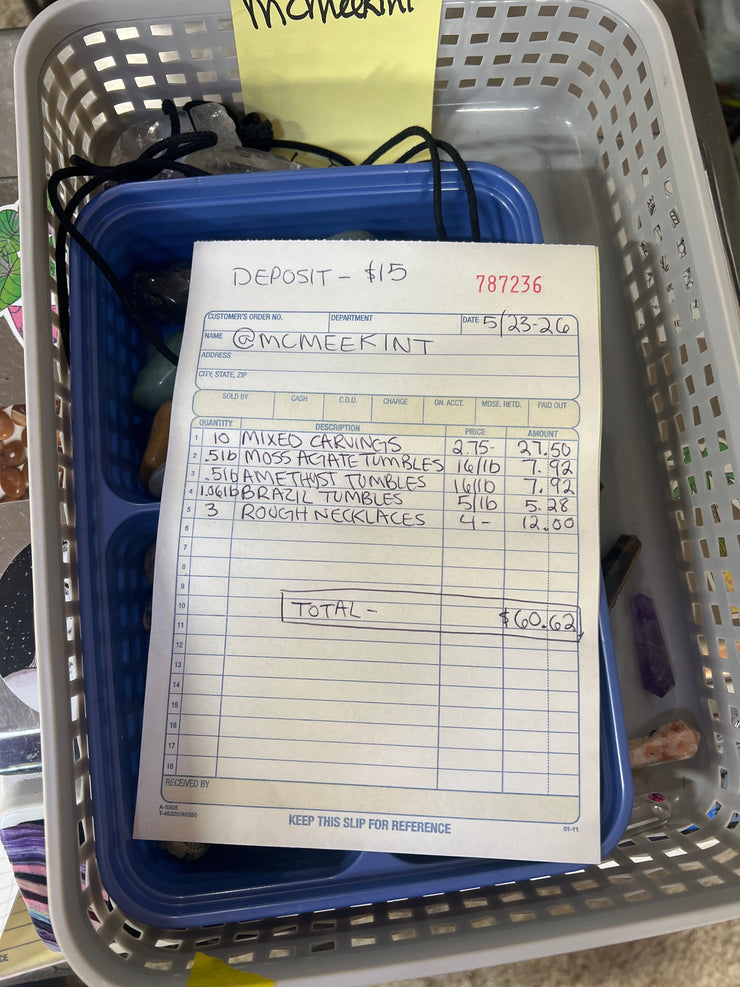 mcmeekint
DEPOSIT - $15
787236
CUSTOMER'S ORDER NO. DEPARTMENT DATE 5/23-26
NAME @MCMEEKINT
ADDRESS
CITY, STATE, ZIP
SOLD BY CASH C.O.D. CHARGE ON. ACCT. MDSE. RETD. PAID OUT
QUANTITY DESCRIPTION PRICE AMOUNT
1 10 MIXED CARVINGS 2.75- 27.50
2 .5lb MOSS AGATE TUMBLES 16/lb 7.92
3 .5lb AMETHYST TUMBLES 16/lb 7.92
4 1.06lb BRAZIL TUMBLES 5/lb 5.28
5 3 ROUGH NECKLACES 4- 12.00
6
7
8
9
10 TOTAL - $60.62
11
12
13
14
15
16
17
18
RECEIVED BY
A-5805
T-46320/46350
KEEP THIS SLIP FOR REFERENCE
01-11